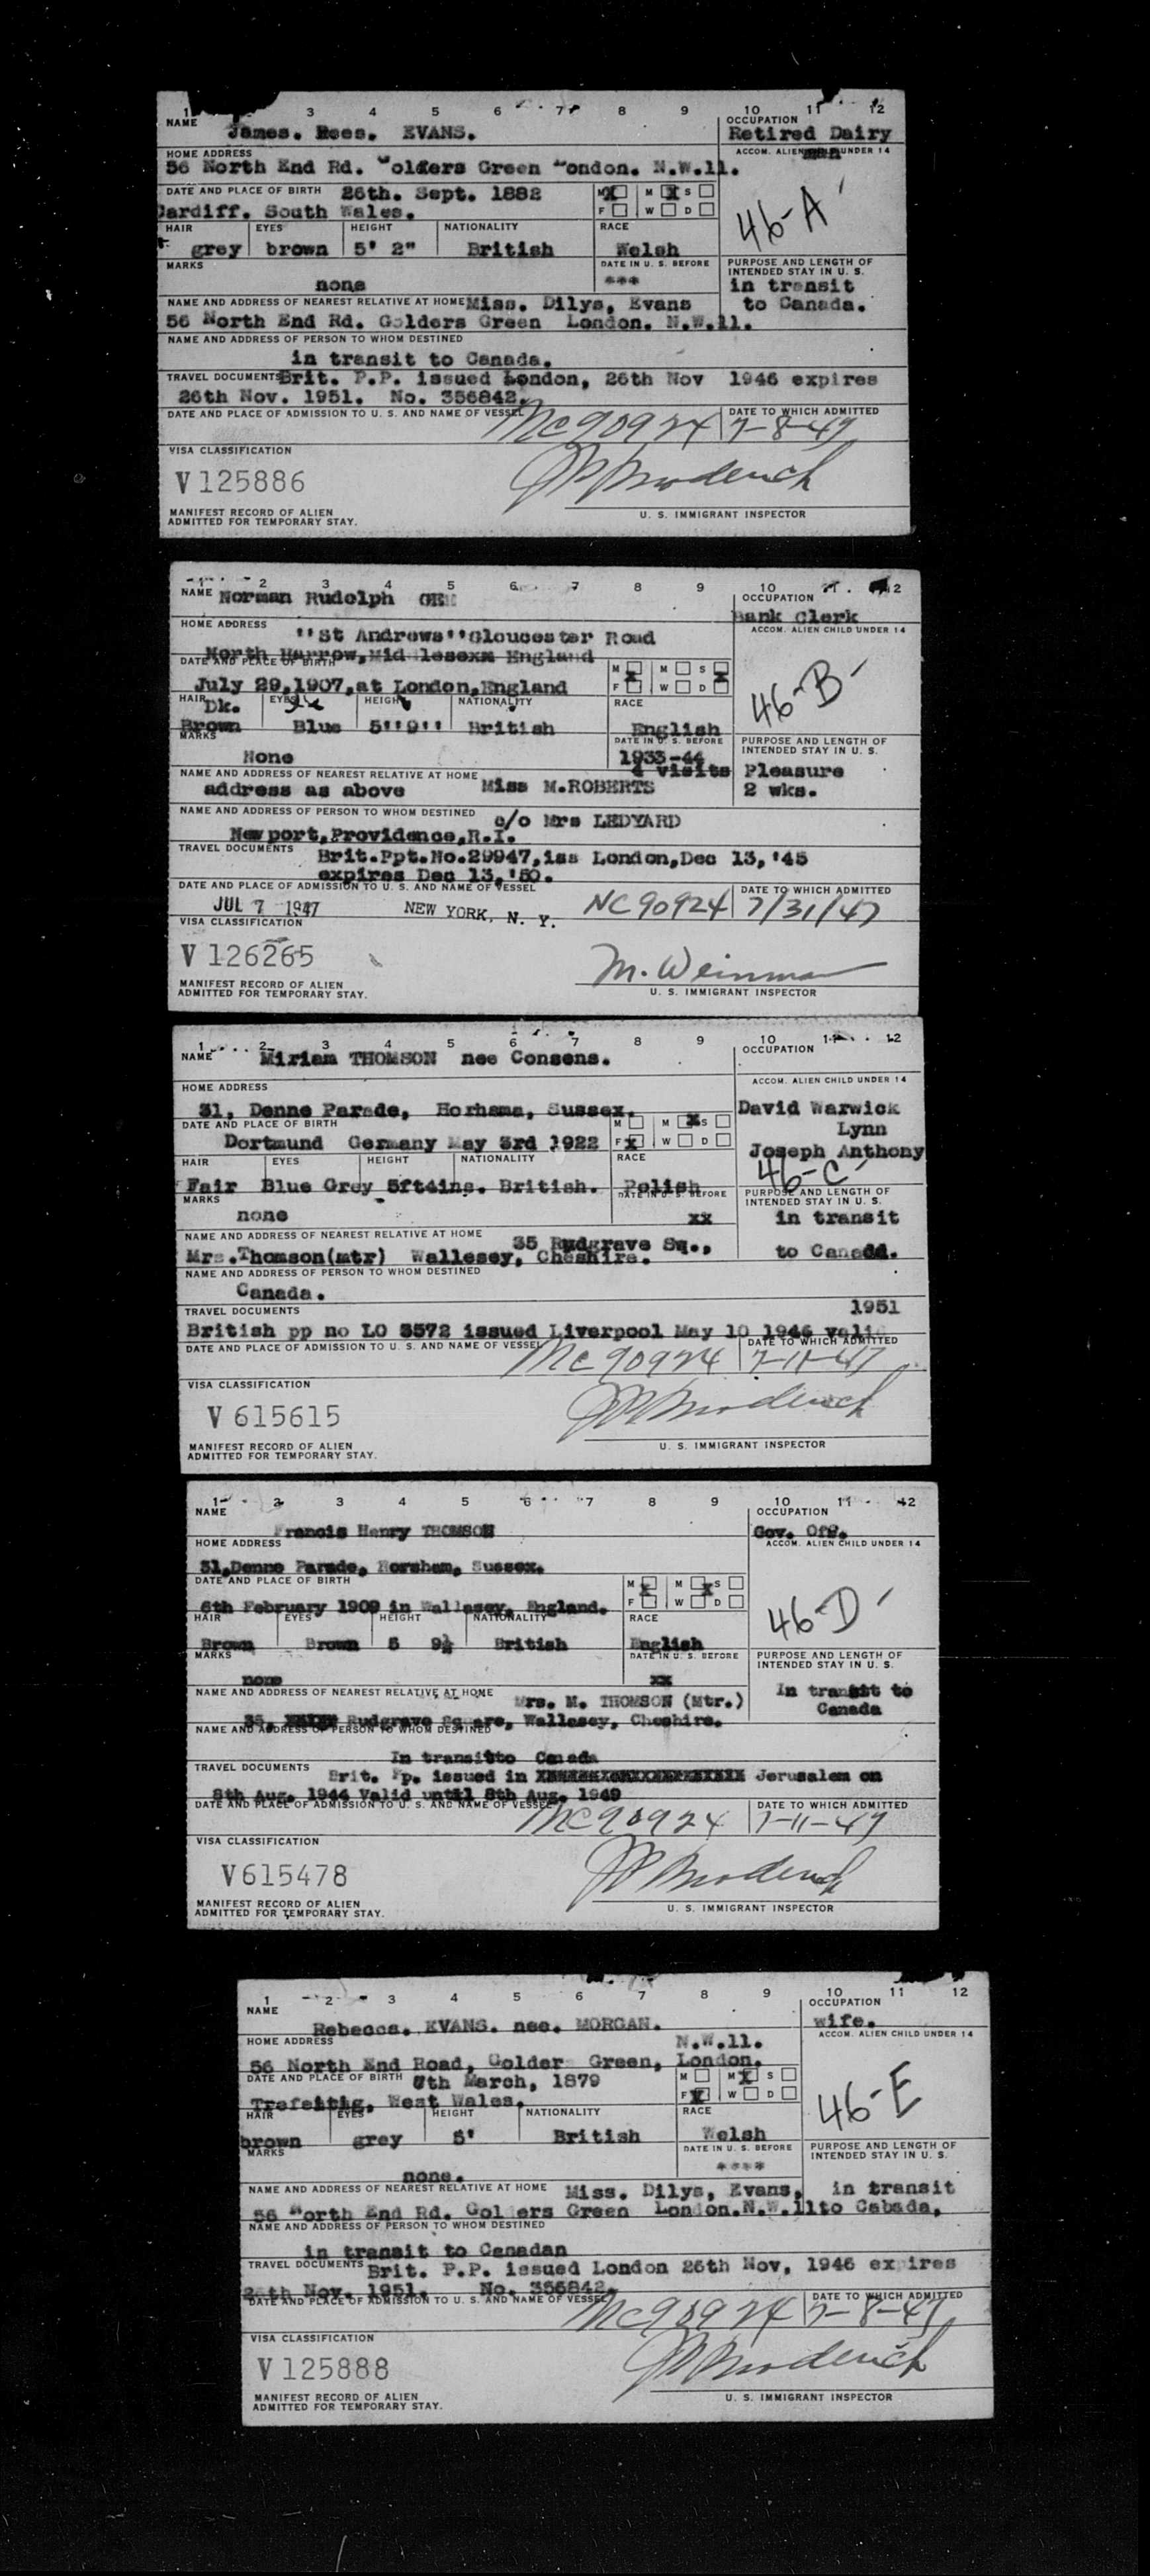 1 3 4 5 6 7 8 9 10 11 12
NAME James. Rees. EVANS. OCCUPATION Retired Dairy man
HOME ADDRESS ACCOM. ALIEN UNDER 14
56 North End Rd. Golders Green London. N.W.11.
DATE AND PLACE OF BIRTH 26th. Sept. 1882 M X M X S
Cardiff. South Wales. F W D
46-A
HAIR EYES HEIGHT NATIONALITY RACE
grey brown 5' 2" British Welsh
MARKS DATE IN U. S. BEFORE PURPOSE AND LENGTH OF INTENDED STAY IN U. S.
none *** in transit
NAME AND ADDRESS OF NEAREST RELATIVE AT HOME Miss. Dilys, Evans to Canada.
56 North End Rd. Golders Green London. N.W.11.
NAME AND ADDRESS OF PERSON TO WHOM DESTINED
in transit to Canada.
TRAVEL DOCUMENTS Brit. P.P. issued London, 26th Nov 1946 expires
26th Nov. 1951. No. 356842.
DATE AND PLACE OF ADMISSION TO U. S. AND NAME OF VESSEL NC90924 DATE TO WHICH ADMITTED 7-8-47
VISA CLASSIFICATION
V 125886
MANIFEST RECORD OF ALIEN
ADMITTED FOR TEMPORARY STAY. U. S. IMMIGRANT INSPECTOR
1 2 3 4 5 6 7 8 9 10 11 12
NAME Norman Rudolph OCCUPATION
Bank Clerk
HOME ADDRESS ''St Andrews''Gloucester Road ACCOM. ALIEN CHILD UNDER 14
North Harrow,Middlesexm England
DATE AND PLACE OF BIRTH M X M S X
July 29,1907,at London,England F W D
46-B
HAIR EYES HEIGHT NATIONALITY RACE
Dk.
Brown Blue 5''9'' British English
MARKS DATE IN U. S. BEFORE PURPOSE AND LENGTH OF INTENDED STAY IN U. S.
None 1933-44
4 visits Pleasure
NAME AND ADDRESS OF NEAREST RELATIVE AT HOME
address as above Miss M.ROBERTS 2 wks.
NAME AND ADDRESS OF PERSON TO WHOM DESTINED c/o Mrs LEDYARD
Newport,Providence,R.I.
TRAVEL DOCUMENTS Brit.Ppt.No.29947,iss London,Dec 13,'45
expires Dec 13,'50.
DATE AND PLACE OF ADMISSION TO U. S. AND NAME OF VESSEL DATE TO WHICH ADMITTED
JUL 7 1947 NEW YORK, N. Y. NC90924 7/31/47
VISA CLASSIFICATION
V 126265
M. Weinman
MANIFEST RECORD OF ALIEN
ADMITTED FOR TEMPORARY STAY. U. S. IMMIGRANT INSPECTOR
1 2 3 4 5 6 7 8 9 10 11 12
NAME Miriam THOMSON nee Consens. OCCUPATION
HOME ADDRESS ACCOM. ALIEN CHILD UNDER 14
31, Denne Parade, Horhams, Sussex. David Warwick
DATE AND PLACE OF BIRTH M M X S Lynn
Dortmund Germany May 3rd 1922 F X W D Joseph Anthony
46-C
HAIR EYES HEIGHT NATIONALITY RACE
Fair Blue Grey 5ft4ins. British. Polish
MARKS DATE IN U. S. BEFORE PURPOSE AND LENGTH OF INTENDED STAY IN U. S.
none xx in transit
NAME AND ADDRESS OF NEAREST RELATIVE AT HOME 35 Rudgrave Sq.,
Mrs.Thomson(mtr) Wallesey, Cheshire. to Canada.
NAME AND ADDRESS OF PERSON TO WHOM DESTINED
Canada.
TRAVEL DOCUMENTS 1951
British pp no LO 3572 issued Liverpool May 10 1946 valid
DATE AND PLACE OF ADMISSION TO U. S. AND NAME OF VESSEL NC90924 DATE TO WHICH ADMITTED 7-11-47
VISA CLASSIFICATION
V 615615
MANIFEST RECORD OF ALIEN
ADMITTED FOR TEMPORARY STAY. U. S. IMMIGRANT INSPECTOR
1 2 3 4 5 6 7 8 9 10 11 12
NAME OCCUPATION
Francis Henry THOMSON Gov. Off.
HOME ADDRESS ACCOM. ALIEN CHILD UNDER 14
31,Denne Parade, Horsham, Sussex.
DATE AND PLACE OF BIRTH M X M X S
6th February 1909 in Wallasey, England. F W D
46-D
HAIR EYES HEIGHT NATIONALITY RACE
Brown Brown 5 9½ British English
MARKS DATE IN U. S. BEFORE PURPOSE AND LENGTH OF INTENDED STAY IN U. S.
none xx In transit to
NAME AND ADDRESS OF NEAREST RELATIVE AT HOME Mrs. M. THOMSON (Mtr.) Canada
35, Rudgrave Square, Wallasey, Cheshire.
NAME AND ADDRESS OF PERSON TO WHOM DESTINED
In transitto Canada
TRAVEL DOCUMENTS Brit. Pp. issued in Jerusalem on
8th Aug. 1944 Valid until 8th Aug. 1949
DATE AND PLACE OF ADMISSION TO U. S. AND NAME OF VESSEL NC90924 DATE TO WHICH ADMITTED 7-11-47
VISA CLASSIFICATION
V615478
MANIFEST RECORD OF ALIEN
ADMITTED FOR TEMPORARY STAY. U. S. IMMIGRANT INSPECTOR
1 2 3 4 5 6 7 8 9 10 11 12
NAME OCCUPATION
Rebecca. EVANS. nee. MORGAN. wife.
HOME ADDRESS N.W.11. ACCOM. ALIEN CHILD UNDER 14
56 North End Road, Golder Green, London.
DATE AND PLACE OF BIRTH 8th March, 1879 M M X S
West Wales. F X W D
46-E
HAIR EYES HEIGHT NATIONALITY RACE
brown grey 5' British Welsh
MARKS DATE IN U. S. BEFORE PURPOSE AND LENGTH OF INTENDED STAY IN U. S.
none. ****
NAME AND ADDRESS OF NEAREST RELATIVE AT HOME Miss. Dilys, Evans, in transit
56 North End Rd. Golders Green London.N.W.11to Cabada,
NAME AND ADDRESS OF PERSON TO WHOM DESTINED
in transit to Canadan
TRAVEL DOCUMENTS Brit. P.P. issued London 26th Nov, 1946 expires
26th Nov. 1951. No. 356842.
DATE AND PLACE OF ADMISSION TO U. S. AND NAME OF VESSEL NC90924 DATE TO WHICH ADMITTED 7-8-47
VISA CLASSIFICATION
V 125888
MANIFEST RECORD OF ALIEN
ADMITTED FOR TEMPORARY STAY. U. S. IMMIGRANT INSPECTOR